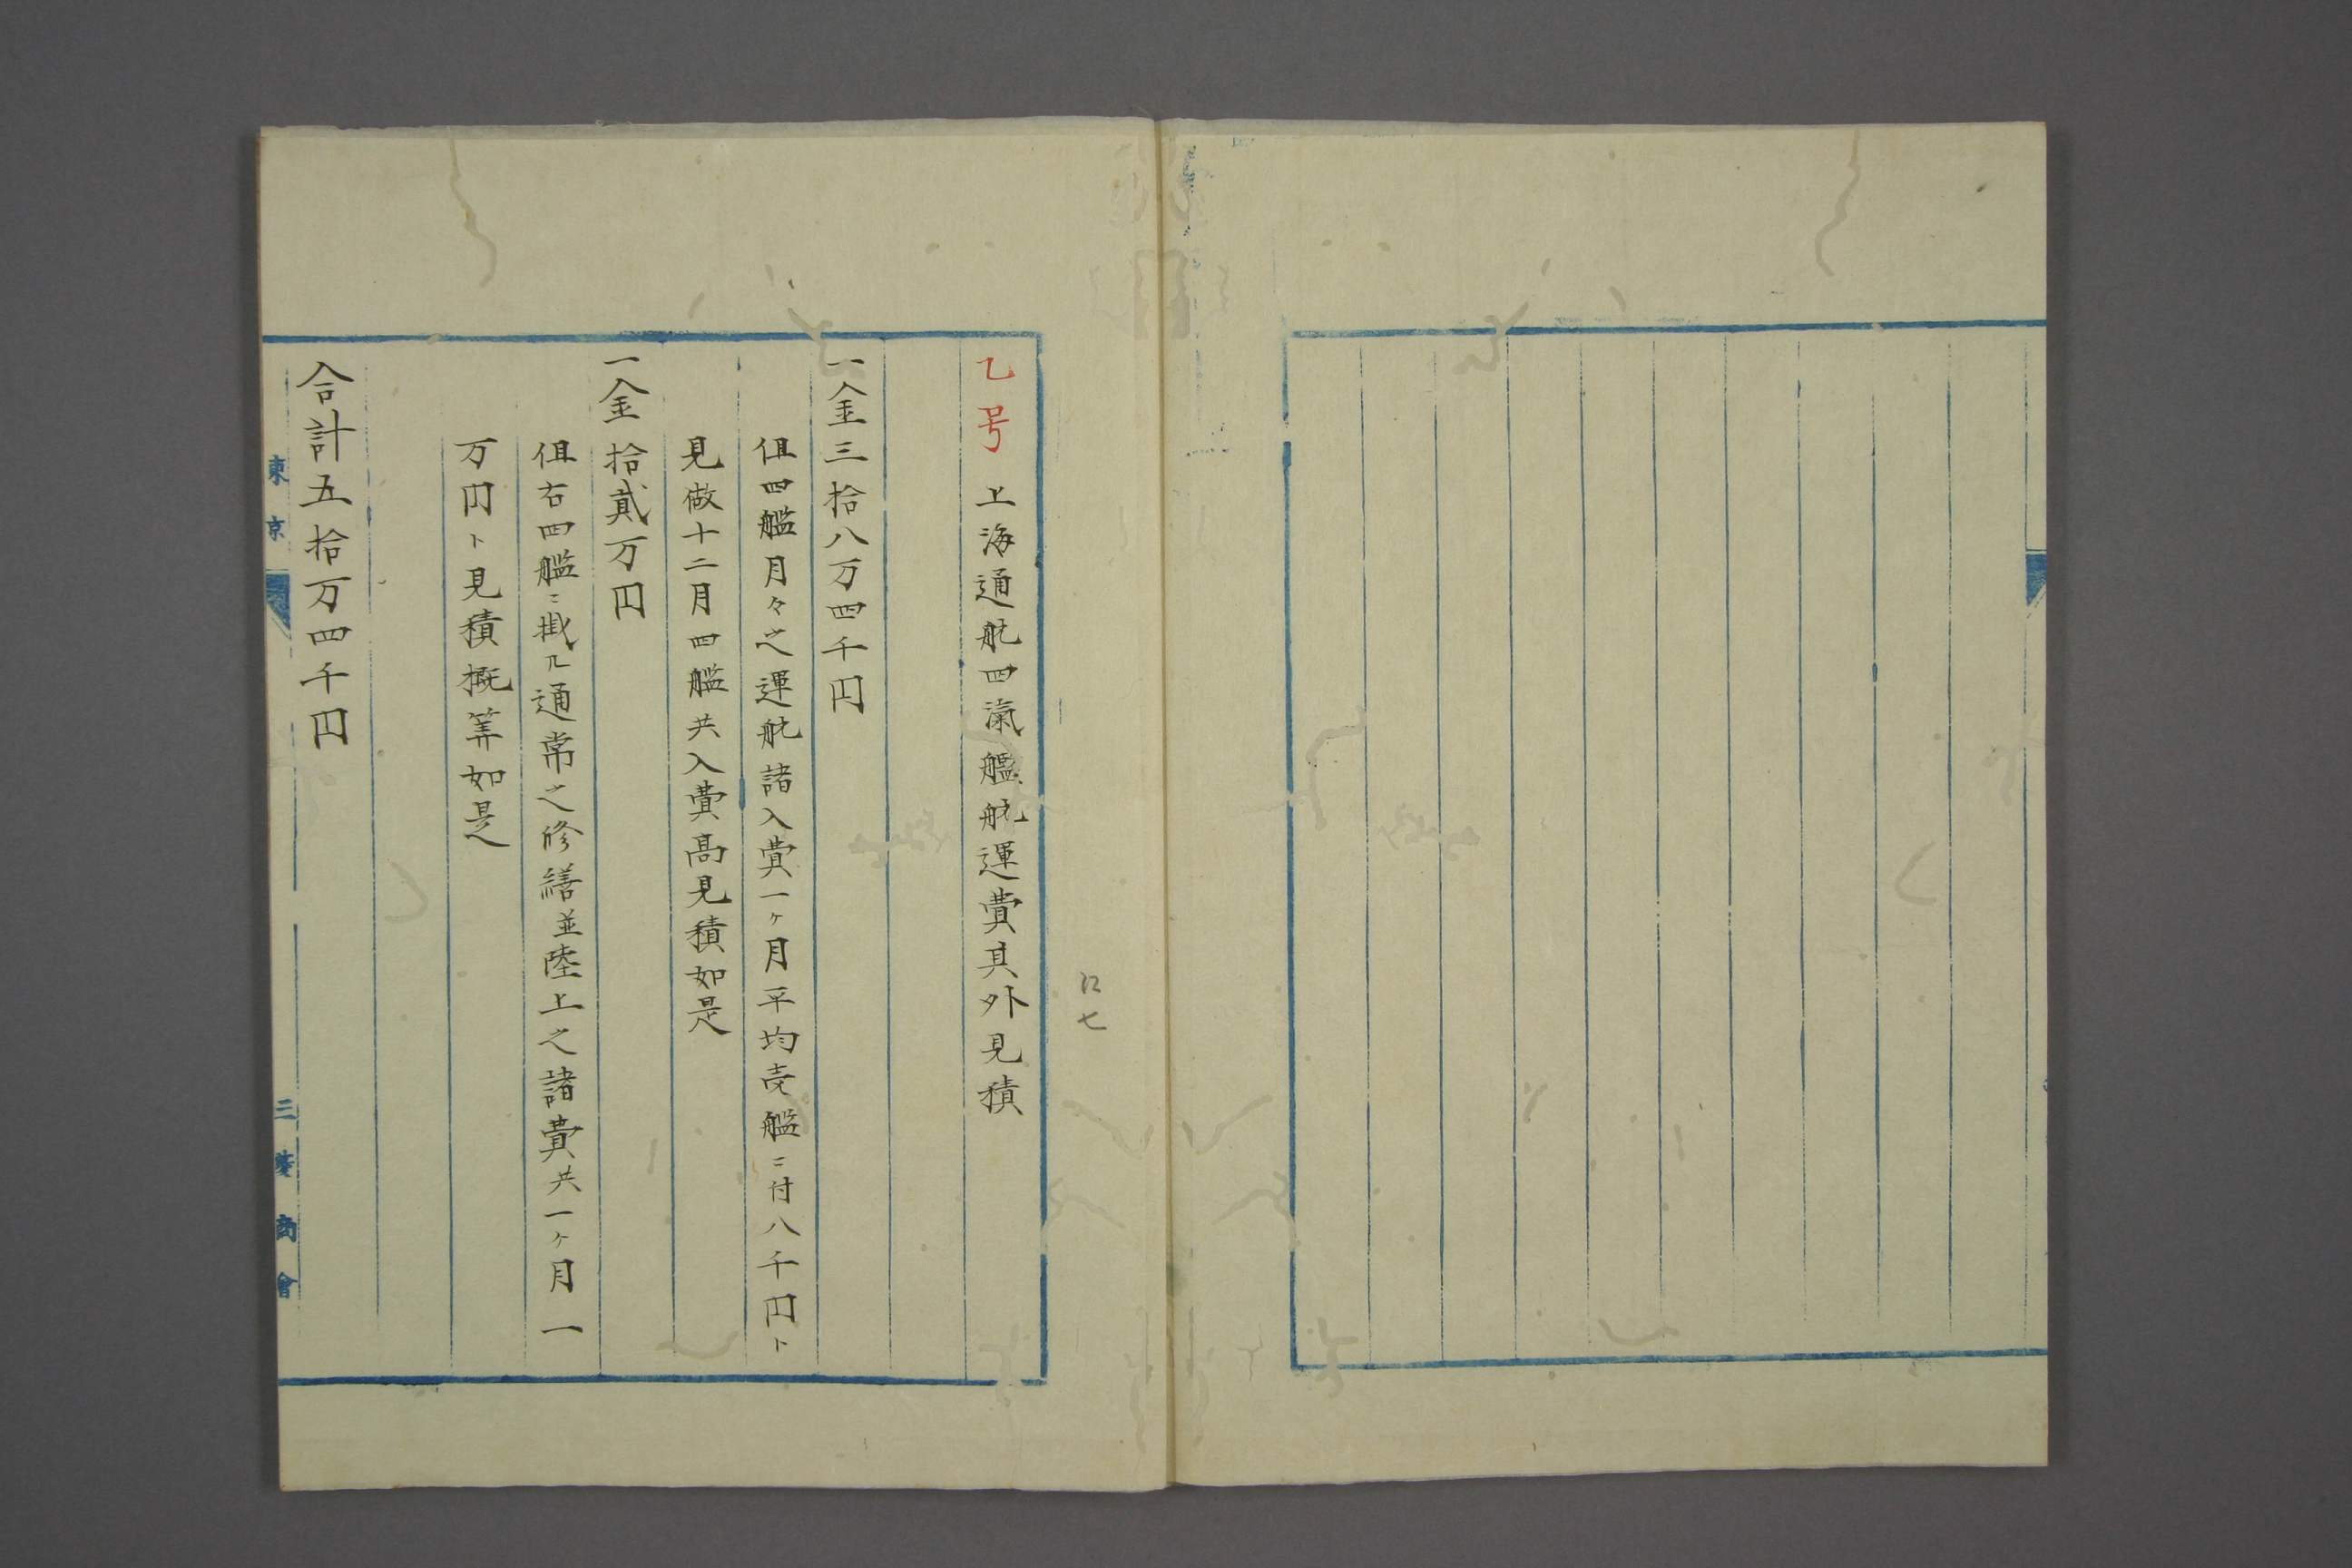 乙号 上海通航四滊艦航運費其外見積
一金三拾八万四千円
但四艦月々之運航諸入費一ヶ月平均壱艦ニ付八千円ト
見做十二月四艦共入費高見積如是
一金拾貳万円
但右四艦ニ掛ル通常之修繕並陸上之諸費共一ヶ月一
万円ト見積概筭如是
合計五拾万四千円
東京
三菱商會